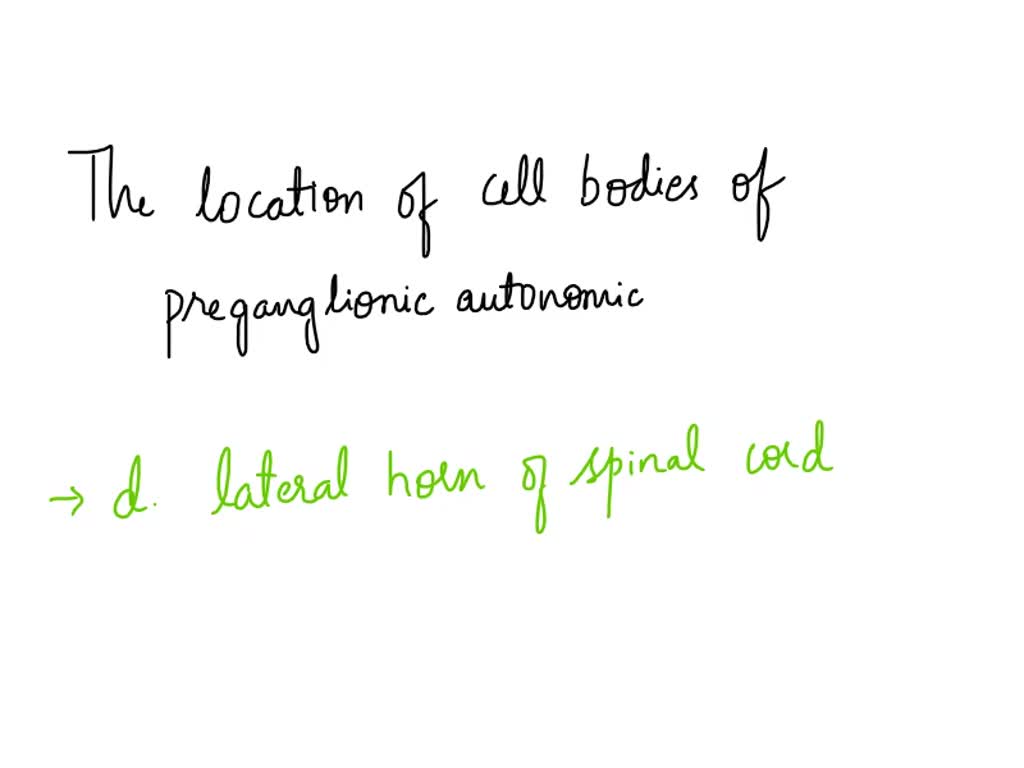 The location of cell bodies of
preganglionic autonomic
→ d. lateral horn of spinal cord